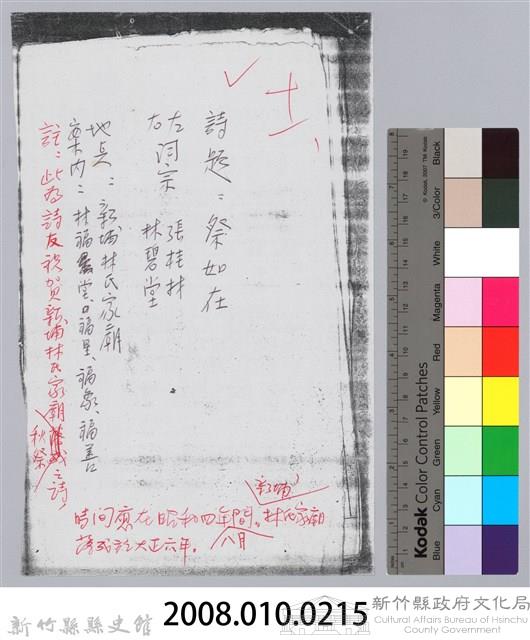 十一、
詩題：祭如在
左詞宗 張桂林
右 林碧堂
地點：新埔林氏家廟
案內：林福堂、福星、福象、福善
註：此為詩友祝賀新埔林氏家廟秋祭之詩，
時間應在昭和四年間八月。新埔林氏家廟
落成於大正六年。
Kodak Color Control Patches
© Kodak, 2007 TM: Kodak
Black
3/Color
White
Magenta
Red
Yellow
Green
Cyan
Blue
新竹縣縣史館
2008.010.0215
新竹縣政府文化局
Cultural Affairs Bureau of Hsinchu
County Government